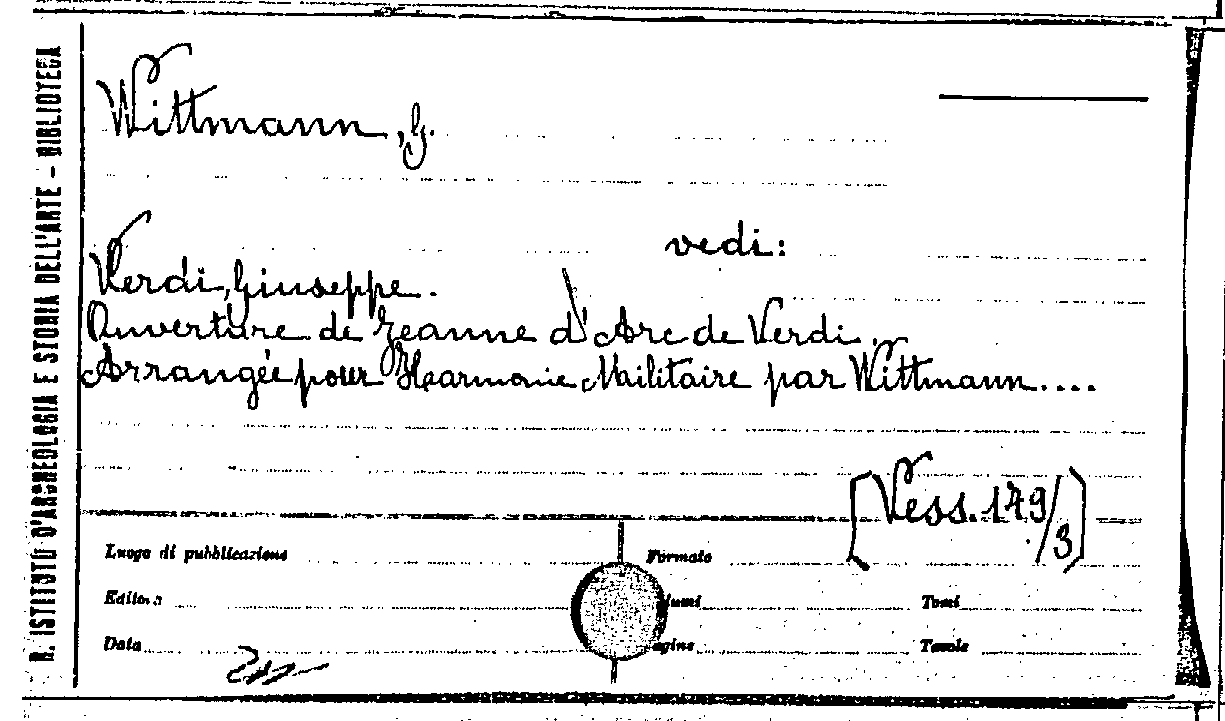 R. ISTITUTO D'ARCHEOLOGIA E STORIA DELL'ARTE - BIBLIOTECA
Wittmann, G.
vedi:
Verdi, Giuseppe.
Ouverture de Jeanne d'Arc de Verdi.
Arrangée pour Harmonie Militaire par Wittmann....
[Vess. 149/3]
Luogo di pubblicazione Formato
Editore lumi Tomi
Data agine Tavole